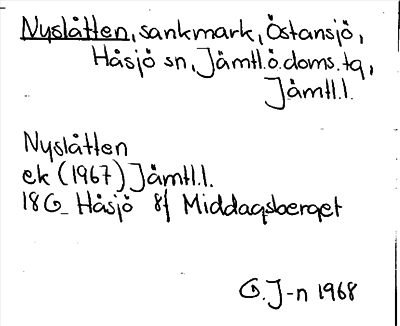 Nyslåtten, sankmark, Östansjö,
Håsjö sn, Jämtl.ö.doms.tg,
Jämtl.l.
Nyslåtten
ek (1967) Jämtl.l.
18G Håsjö 8f Middagsberget
G.J-n 1968